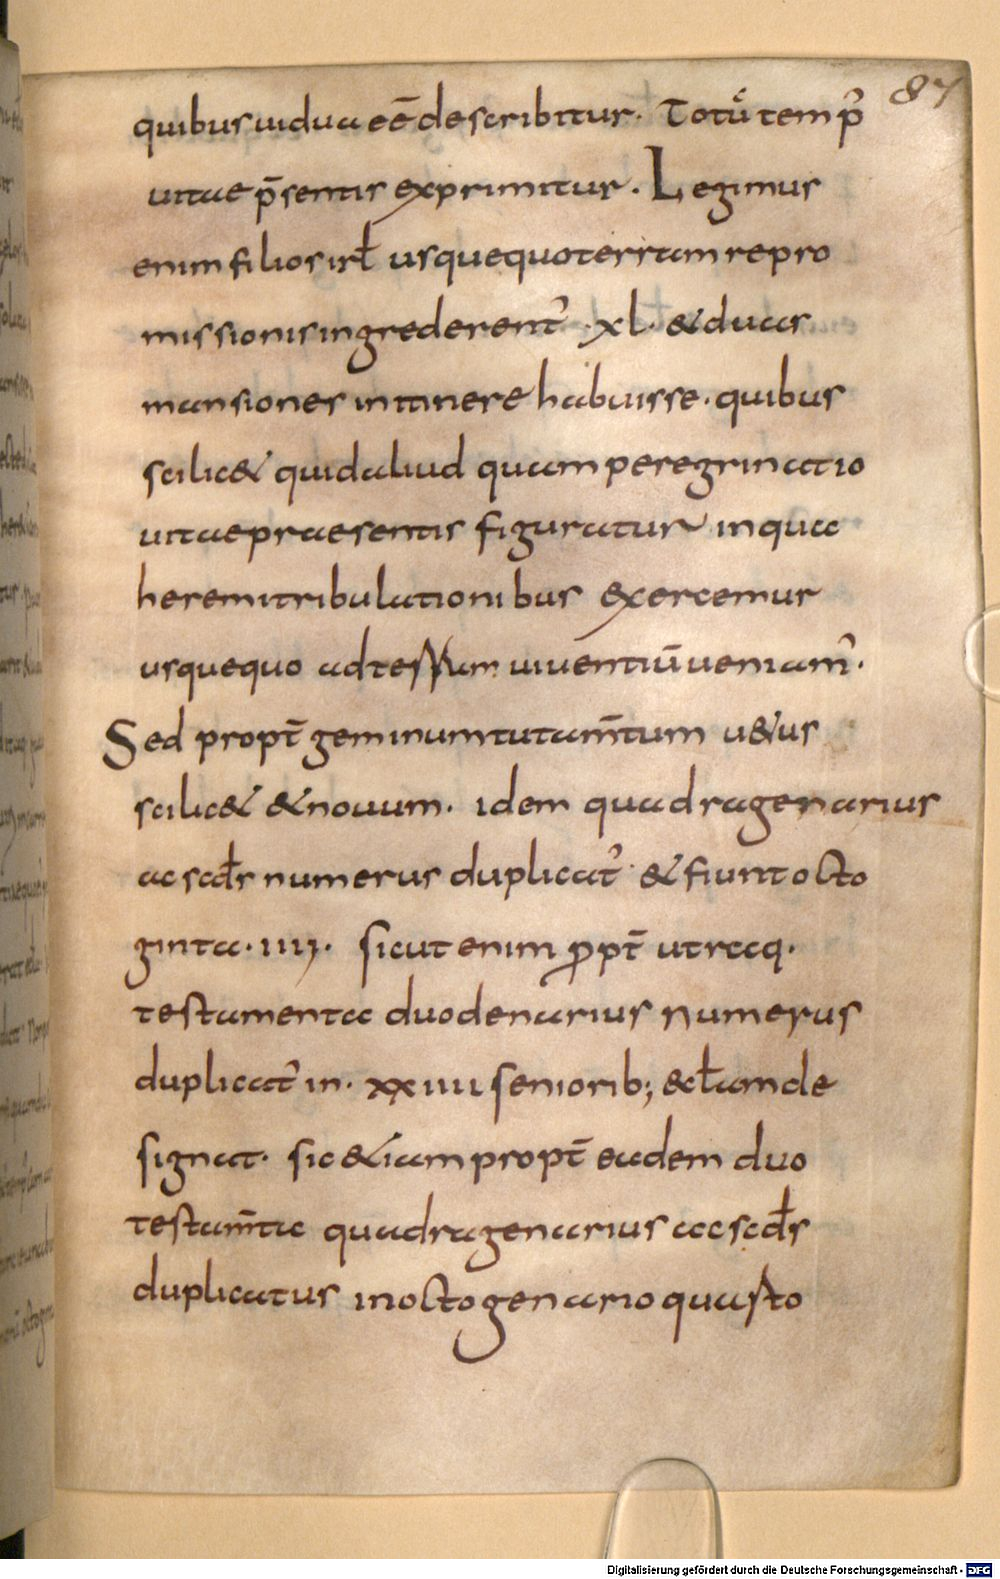 87
quibus uidua eē describitur. Totū temp̄
uitae p̄sentis exprimitur. Legimus
enim filios isrł usquequo terram repro
missionis ingrederent᷒ ·xl· & duas
mansiones in itinere habuisse. quibus
scilic& quid aliud quam peregrinatio
uitae praesentis figuratur in qua
heremi tribulationibus exercemur
usquequo ad terram uiuentiū ueniam᷒.
Sed propt̄ geminum tutam̄tum u&us
scilic& & nouum. idem quadragenarius
ac scđs numerus duplicat᷒ & fiunt octo
ginta. iiij. sicut enim ꝓpt̄ utraq.
testamenta duodenarius numerus
duplicat᷒ in. xxiiii seniorib; & łamde
signat. sic & iam propt̄ eadem duo
testam̄ta quadragenarius ac scđs
duplicatus in octogenario quarto
Digitalisierung gefördert durch die Deutsche Forschungsgemeinschaft - DFG